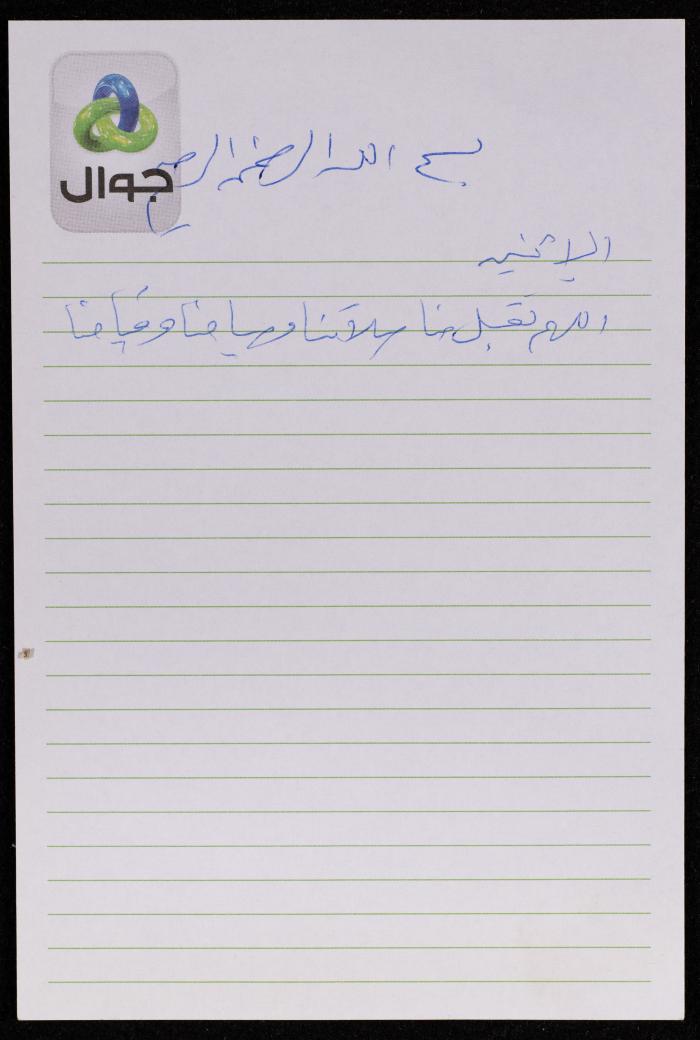 جوال
بسم الله الرحمن الرحيم
الاثنين
اللهم تقبل منا صلاتنا وصيامنا وقيامنا